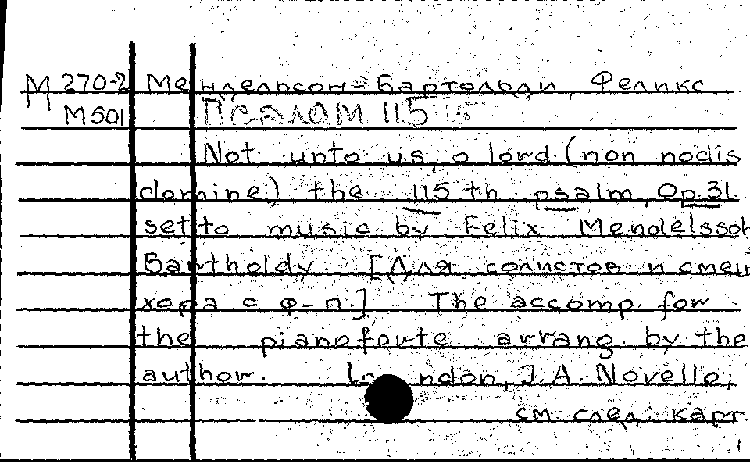 М 270-2 Мендельсон-Бартольди, Феликс
М501 Псалом 115
Not unto us, o lord (non nodis
domine) the 115 th psalm, Op.31.
set to music by Felix Mendelssoh
Bartholdy. [Для солистов и смеш
хора с ф-п.] The accomp. for
the pianoforte arrang. by the
author. London, J.A. Novello,
см. след. карт